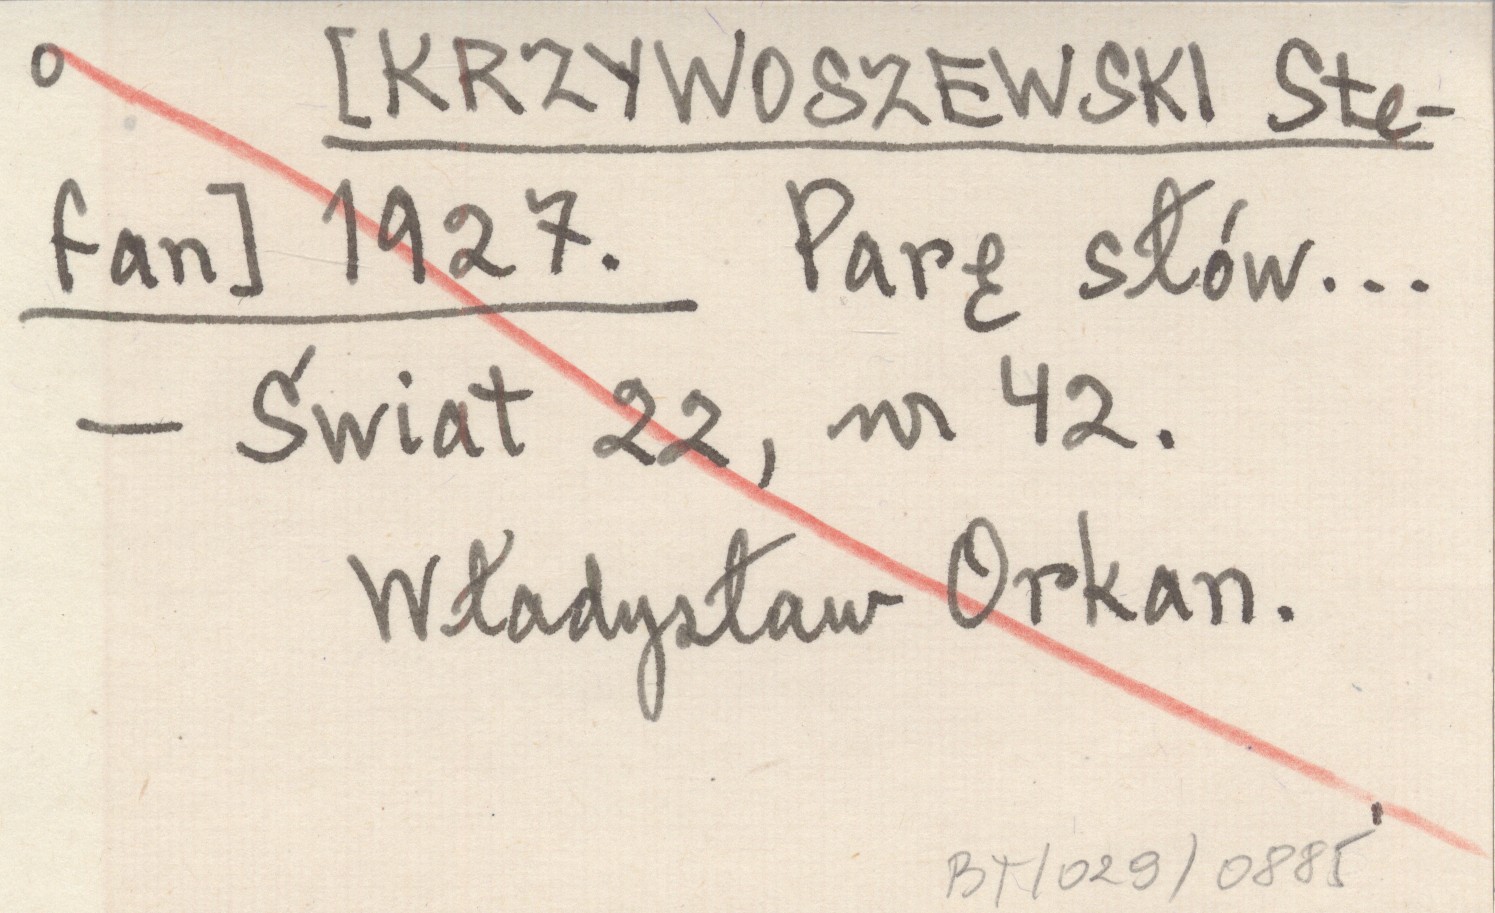 o [KRZYWOSZEWSKI Ste-
fan] 1927. Parę słów...
— Świat 22, nr 42.
Władysław Orkan.
BT/029/0885